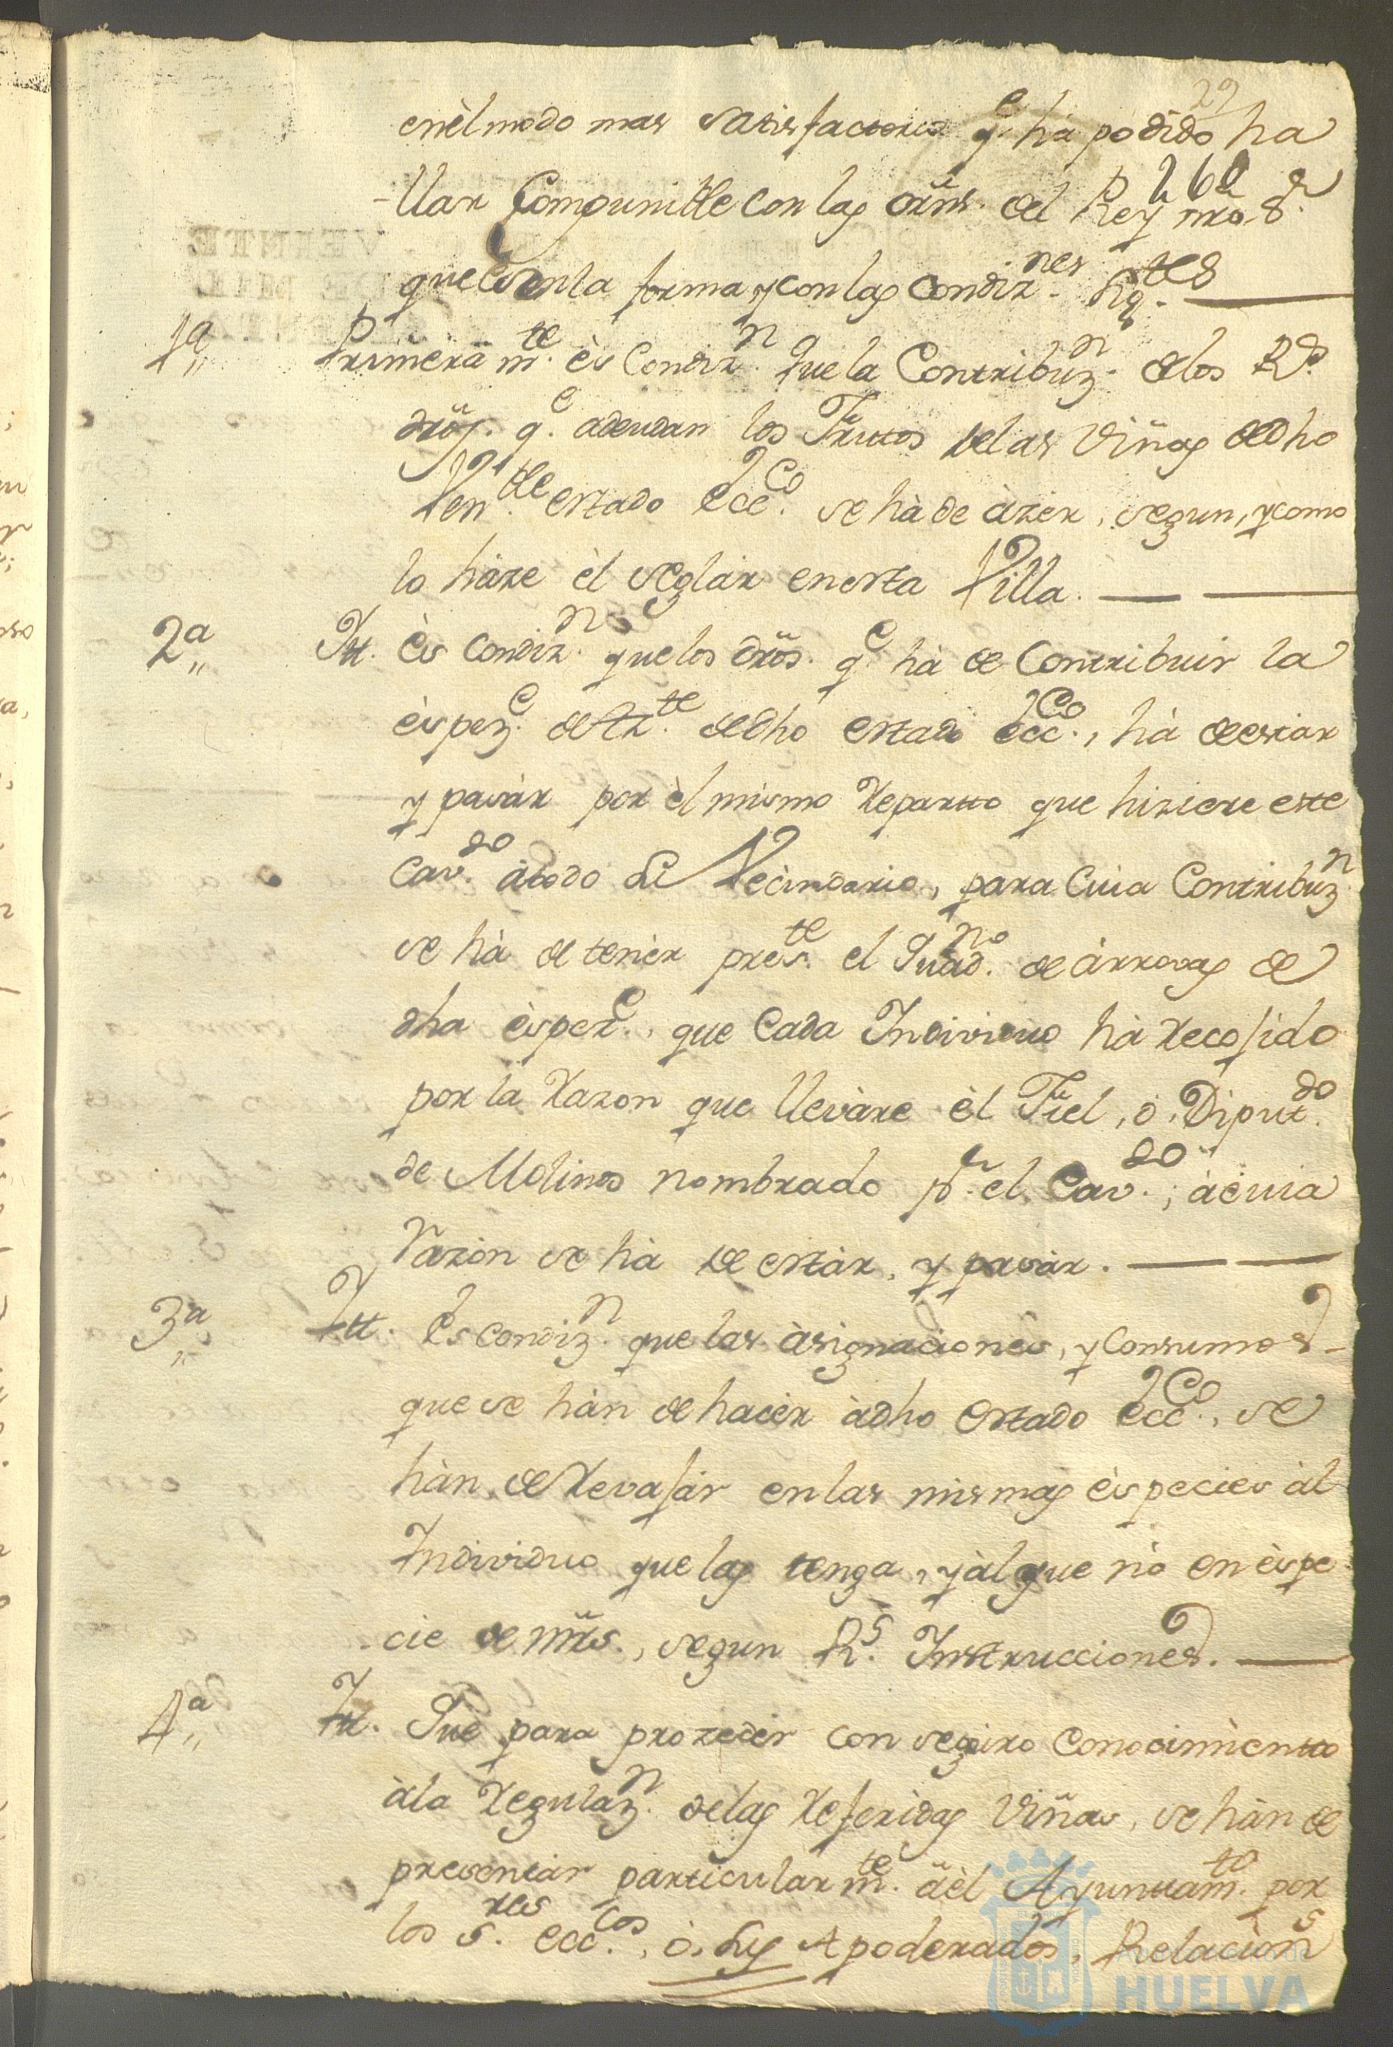 29
enèl modo mas satisfactorio q.e hà podido ha
260
-llar Compunible con las orñs. del Rey nro S.r
que es en la forma, y con las Condiz.nes sig.tes
1.a Primeram.te ès Condiz.n Que la Contribuz.n de los R.s
drõs. q.e adeudan los Frutos de las Viñas de dho
Ven.ble estado Ecc.co se hà de àzer, segun, y como
lo hàze èl seglàr en esta Villa.
2.a Itt. ès Condiz.n que los drõs. q.e hà de Contribuir la
èspez.e de Az.te de dho estado ècc.co, hà de estar
y pasàr por èl mismo Repartto que hiziere este
Cav.do àtodo su Vecindario, para Cuia Contribuz.n
se hà de tenèr pres.te el Quad.no de àrrovas de
dha èspez.e, que Cada Individuo hà Recojido
por la Razon que llevàre èl Fiel, ò, Diput.do
de Molinos nombrado p.r el Cav.do; àcuia
Razòn se hà de estàr, y pasàr.
3.a Itt. Es condiz.n que las àsignaciones, y Consumos
que se hàn de hacèr àdho Estado ècc.co, se
hàn de Revajàr en las mismas èspecies àl
Individuo que las tenga, y àl que nò en èspe
-cie de mrs., segun R.s Instrucciones.
4.a Itt. Que para prozedèr con seguro Conocimientto
àla Regulaz.n delas Referidas Viñas, se hàn de
presentàr particularm.te àèl Ayunttam.to por
los S.res ecc.cos, ò, sus Apoderados, Relaciòns
HUELVA